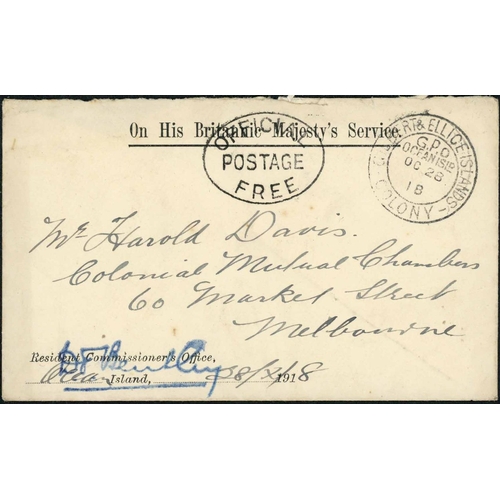 On His Britannic Majesty's Service.
OFFICIAL
POSTAGE
FREE
GILBERT & ELLICE ISLANDS
G.P.O
OCEAN ISLD
OC 28
18
-COLONY-
Mr Harold Davis.
Colonial Mutual Chambers
60 Market Street
Melbourne
Resident Commissioner's Office,
Ocean Island, 28/X/1918